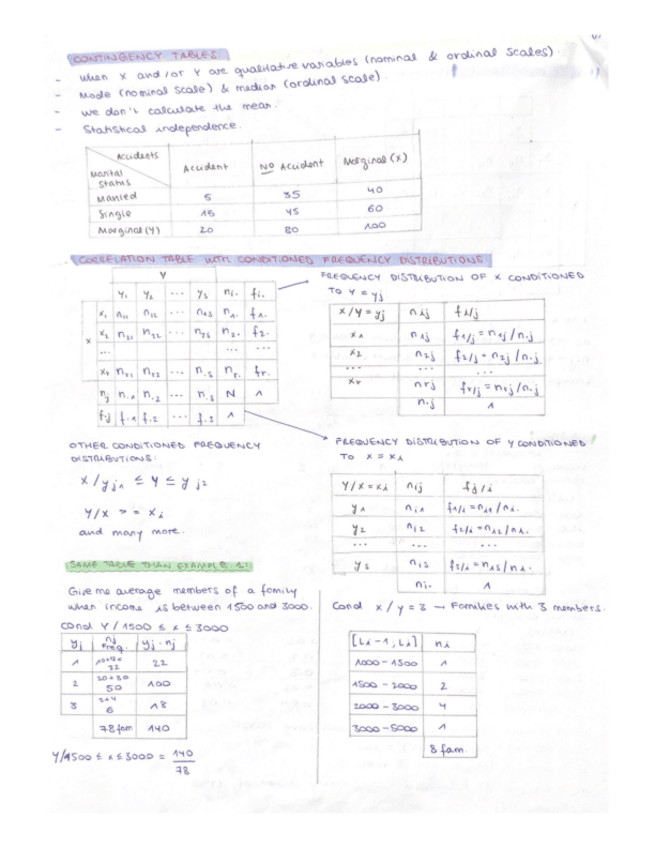 CONTINGENCY TABLES.
- when X and/or Y are qualitative variables (nominal & ordinal scales).
- Mode (nominal scale) & median (ordinal scale).
- we don't calculate the mean.
- Statistical independence.
Accidents
Marital Status
Accident | NO Accident | Marginal (X)
Married | 5 | 35 | 40
Single | 15 | 45 | 60
Marginal (Y) | 20 | 80 | 100
CORRELATION TABLE WITH CONDITIONED FREQUENCY DISTRIBUTIONS
Y
y1 y2 ... ys ni. fi.
x x1 n11 n12 ... n1s n1. f1.
x2 n21 n22 ... n2s n2. f2.
... ... ...
xr nr1 nr2 ... n.s nr. fr.
nj n.1 n.2 ... n.s N 1
f.j f.1 f.2 ... f.s 1
FREQUENCY DISTRIBUTION OF X CONDITIONED
TO Y = yj
X/Y=yj | nij | fi/j
x1 | n1j | f1/j = n1j/n.j
x2 | n2j | f2/j = n2j/n.j
... ... ...
xr | nrj | fr/j = nrj/n.j
n.j | 1
OTHER CONDITIONED FREQUENCY
DISTRIBUTIONS:
X/yj1 ≤ Y ≤ yj2
Y/X > = xi
and many more.
FREQUENCY DISTRIBUTION OF Y CONDITIONED
TO X = xi
Y/X=xi | nij | fj/i
y1 | ni1 | f1/i = ni1/ni.
y2 | ni2 | f2/i = ni2/ni.
... ... ...
ys | nis | fs/i = nis/ni.
ni. | 1
SAME TABLE THAN EXAMPLE 2:
Give me average members of a family
when income is between 1500 and 3000.
Cond Y/1500 ≤ x ≤ 3000
yj | nj Freq. | yj·nj
1 | 22 | 22
2 | 20+30 50 | 100
3 | 2+4 6 | 18
78 fam | 140
Y/1500 ≤ x ≤ 3000 = 140/78
Cond x/y = 3 → Families with 3 members.
[Li-1, Li] | ni
1000 - 1500 | 1
1500 - 2000 | 2
2000 - 3000 | 4
3000 - 5000 | 1
8 fam.